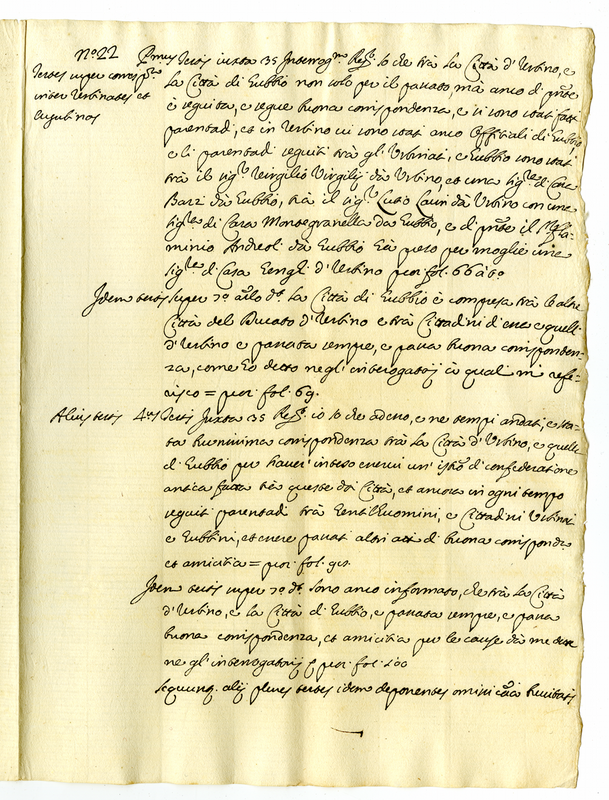 N.º 22 Primus testis iuxta 35 Interrog.m Resp.t Io che trà la Città d'Urbino, e
Testes super corresp.tia
inter Urbinates et
Eugubinos
la Città di Eubbio non solo per il passato mà anco di pnte
è seguita, e segue buona corrispondenza, e vi sono stati fatti
parentadi, et in Urbino vi sono stati anco Offitiali di Eubbio
e li parentadi seguiti trà gl'Urbinati, e Eubbio sono stati
trà il sig.r Virgilio Virgilij dà Urbino, et una sig.ra di Casa
Barzi dà Eubbio, trà il sig.r Cavi dà Urbino con una
sig.ra di Casa Montegranella da Eubbio, e di pnte il
minio Andreol. dà Eubbio hà preso per moglie una
sig.ra di Casa d'Urbino poi fol. 66 à 69
Idem testis super 7.º artlo d.t la Città di Eubbio è compresa trà le altre
Città del Ducato d'Urbino e trà Cittadini di essa e quelli
d'Urbino è passata sempre, e passa buona corrisponden-
za, come hò detto negl'interogatorij à quali mi refe-
risco = poi fol. 69.
Alius testis 4.us testis Iuxta 35 Resp.t io sò che adesso, e ne tempi andati, e sta-
ta buonissima corrispondenza trà la Città d'Urbino, e quella
di Eubbio per haver inteso esservi un' istro di confederatione
antica fatta trà queste doi Città, et ancora in ogni tempo
seguiti parentadi trà Gentilhuomini, e Cittadini Urbini
e Eubbini, et essere passati altri atti di buona corrispondza
et amicitia = poi fol. 90.
Idem testis super 7.º d.t sono anco informato, che trà la Città
d'Urbino, e la Città di Eubbio, è passata sempre, e passa
buona corrispondenza, et amicitia per le cause dà me dette
ne gl'interrogatorij poi fol. 100
Sequunq. alij plures testes idem deponentes omissi brevitatis